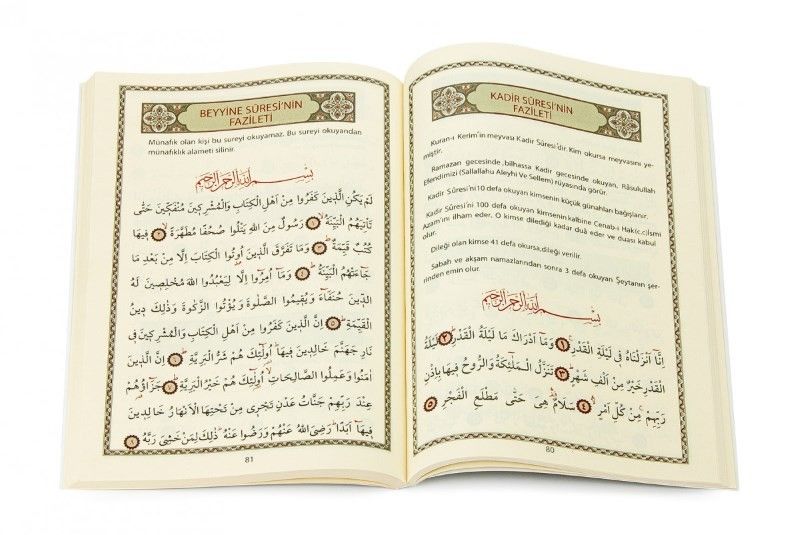 KADİR SÛRESİ'NİN
FAZİLETİ
Kuran-ı Kerim'in meyvası Kadir Sûresi'dir. Kim okursa meyvasını ye-
miştir.
Ramazan gecesinde ,bilhassa Kadir gecesinde okuyan, Râsulullah
Efendimizi (Sallallahu Aleyhi Ve Sellem) rüyasında görür.
Kadir Sûresi'ni 10 defa okuyan kimsenin küçük günahları bağışlanır.
Kadir Sûresi'ni 100 defa okuyan kimsenin kalbine Cenab-ı Hak(c.c)İsmi
Azam'ını ilham eder. O kimse dilediği kadar duâ eder ve duası kabul
olur.
Dileği olan kimse 41 defa okursa,dileği verilir.
Sabah ve akşam namazlarından sonra 3 defa okuyan Şeytanın şer-
rinden emin olur.
بِسْمِ اللهِ الرَّحْمٰنِ الرَّحِيمِ
اِنَّا اَنْزَلْنَاهُ فِى لَيْلَةِ الْقَدْرِ ﴿١﴾ وَمَا اَدْرَاكَ مَا لَيْلَةُ الْقَدْرِ ﴿٢﴾ لَيْلَةُ
الْقَدْرِ خَيْرٌ مِنْ اَلْفِ شَهْرٍ ﴿٣﴾ تَنَزَّلُ الْمَلٰٓئِكَةُ وَالرُّوحُ فِيهَا بِاِذْنِ
رَبِّهِمْ مِنْ كُلِّ اَمْرٍ ﴿٤﴾ سَلَامٌ هِىَ حَتّٰى مَطْلَعِ الْفَجْرِ ﴿٥﴾
80
BEYYİNE SÛRESİ'NİN
FAZİLETİ
Münafık olan kişi bu sureyi okuyamaz. Bu sureyi okuyandan
münafıklık alameti silinir.
بِسْمِ اللهِ الرَّحْمٰنِ الرَّحِيمِ
لَمْ يَكُنِ الَّذِينَ كَفَرُوا مِنْ اَهْلِ الْكِتَابِ وَالْمُشْرِكِينَ مُنْفَكِّينَ حَتّٰى
تَاْتِيَهُمُ الْبَيِّنَةُ ﴿١﴾ رَسُولٌ مِنَ اللهِ يَتْلُوا صُحُفًا مُطَهَّرَةً ﴿٢﴾ فِيهَا
كُتُبٌ قَيِّمَةٌ ﴿٣﴾ وَمَا تَفَرَّقَ الَّذِينَ اُوتُوا الْكِتَابَ اِلَّا مِنْ بَعْدِ مَا
جَاءَتْهُمُ الْبَيِّنَةُ ﴿٤﴾ وَمَا اُمِرُوا اِلَّا لِيَعْبُدُوا اللهَ مُخْلِصِينَ لَهُ
الدِّينَ حُنَفَاءَ وَيُقِيمُوا الصَّلٰوةَ وَيُؤْتُوا الزَّكٰوةَ وَذٰلِكَ دِينُ
الْقَيِّمَةِ ﴿٥﴾ اِنَّ الَّذِينَ كَفَرُوا مِنْ اَهْلِ الْكِتَابِ وَالْمُشْرِكِينَ فِى
نَارِ جَهَنَّمَ خَالِدِينَ فِيهَا اُولٰٓئِكَ هُمْ شَرُّ الْبَرِيَّةِ ﴿٦﴾ اِنَّ الَّذِينَ
اٰمَنُوا وَعَمِلُوا الصَّالِحَاتِ اُولٰٓئِكَ هُمْ خَيْرُ الْبَرِيَّةِ ﴿٧﴾ جَزَاؤُهُمْ
عِنْدَ رَبِّهِمْ جَنَّاتُ عَدْنٍ تَجْرِى مِنْ تَحْتِهَا الْاَنْهَارُ خَالِدِينَ
فِيهَا اَبَدًا رَضِىَ اللهُ عَنْهُمْ وَرَضُوا عَنْهُ ذٰلِكَ لِمَنْ خَشِىَ رَبَّهُ ﴿٨﴾
81